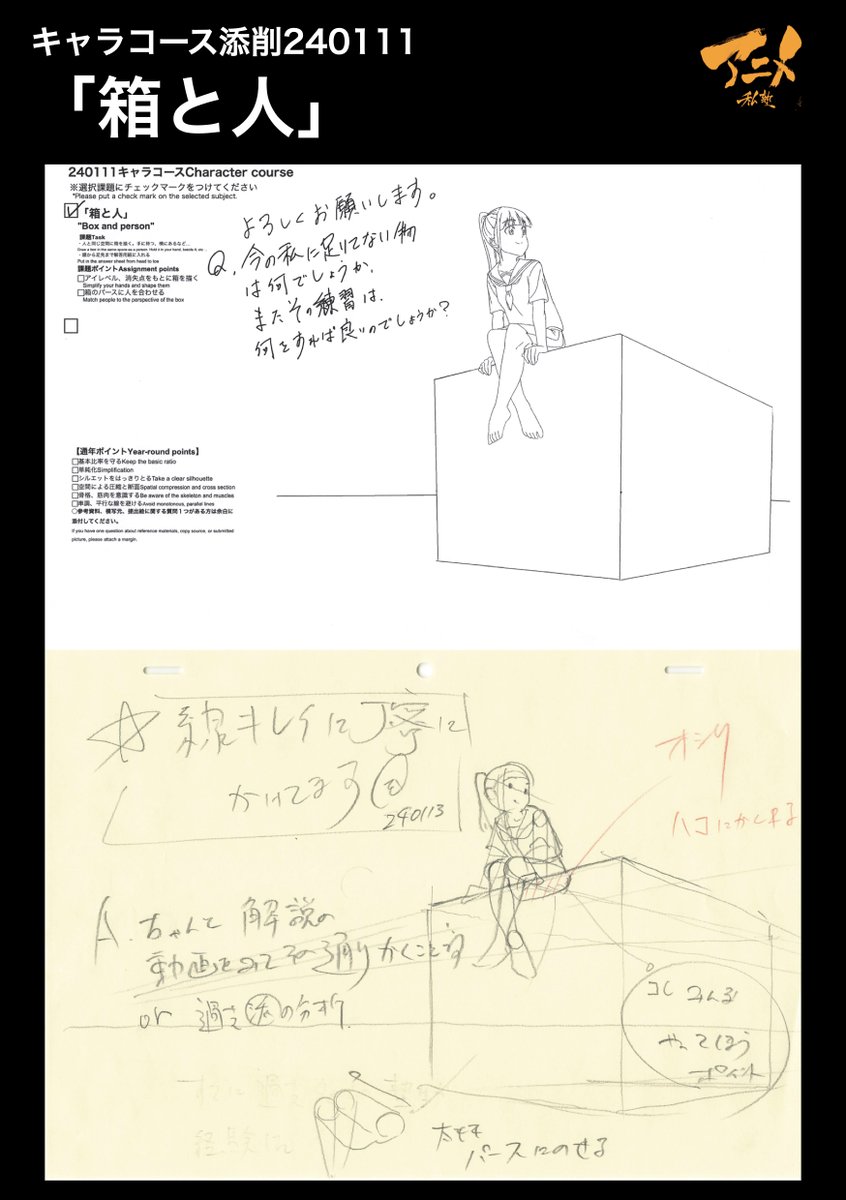 キャラコース添削240111
「箱と人」
アニメ
私塾
240111キャラコースCharacter course
※選択課題にチェックマークをつけてください
*Please put a check mark on the selected subject.
「箱と人」
"Box and person"
課題Task
・人と同じ空間に箱を描く。手に持つ、横にあるなど...
Draw a box in the same space as a person. Hold it in your hand, beside it, etc...
・頭から足先まで解答用紙に入れる
Put in the answer sheet from head to toe
課題ポイントAssignment points
アイレベル、消失点をもとに箱を描く
Simplify your hands and shape them
箱のパースに人を合わせる
Match people to the perspective of the box
よろしくお願いします。
Q. 今の私に足りてない物
は何でしょうか。
またその練習は、
何をすれば良いのでしょうか？
【通年ポイントYear-round points】
基本比率を守るKeep the basic ratio
単純化Simplification
シルエットをはっきりとるTake a clear silhouette
空間による圧縮と断面Spatial compression and cross section
骨格、筋肉を意識するBe aware of the skeleton and muscles
単調、平行な線を避けるAvoid monotonous, parallel lines
○参考資料、模写元、提出絵に関する質問１つがある方は余白に
添付してください。
If you have one question about reference materials, copy source, or submitted
picture, please attach a margin.
☆線キレイに丁寧に
かいてます
240113
オシリ
A. ちゃんと解説の
動画をみてその通りかくことです
or 過去の分析
コレ みんな
やってしまう
ポイント
太もも
パースにのせる